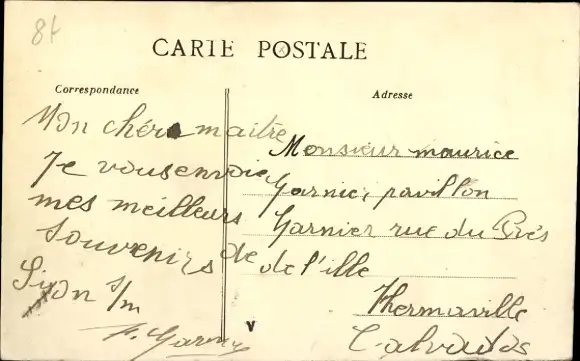 8f
CARTE POSTALE
Correspondance
Mon cher maitre
Je vous envoie
mes meilleurs
souvenirs de
Lion s/m
Adresse
Monsieur maurice
Garnier pavillon
Garnier rue du Prés
de l'ille
Hermaville
Calvados
V